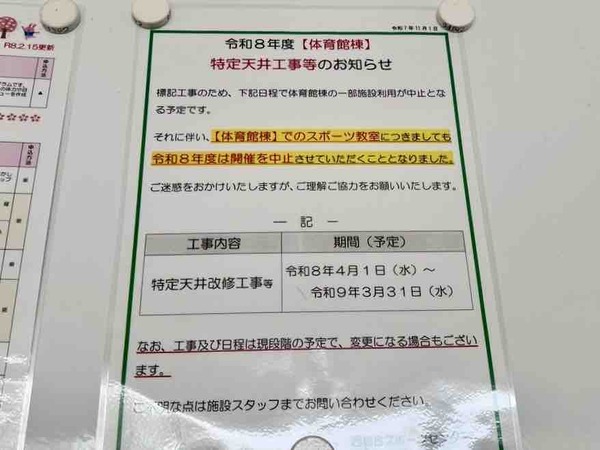 R8.2.15更新
令和7年11月1日
令和8年度【体育館棟】
特定天井工事等のお知らせ
標記工事のため、下記日程で体育館棟の一部施設利用が中止とな
る予定です。
それに伴い、【体育館棟】でのスポーツ教室につきましても
令和8年度は開催を中止させていただくこととなりました。
ご迷惑をおかけいたしますが、ご理解ご協力をお願いいたします。
― 記 ―
工事内容 期間（予定）
特定天井改修工事等 令和8年4月1日（水）～
令和9年3月31日（水）
なお、工事及び日程は現段階の予定で、変更になる場合もござい
ます。
ご不明な点は施設スタッフまでお問い合わせください。
スポーツセンター